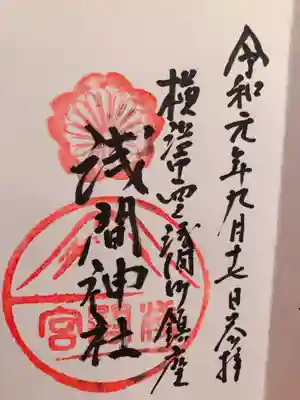 令和元年九月十七日参拝
横浜市西区浅間町鎮座
浅間神社